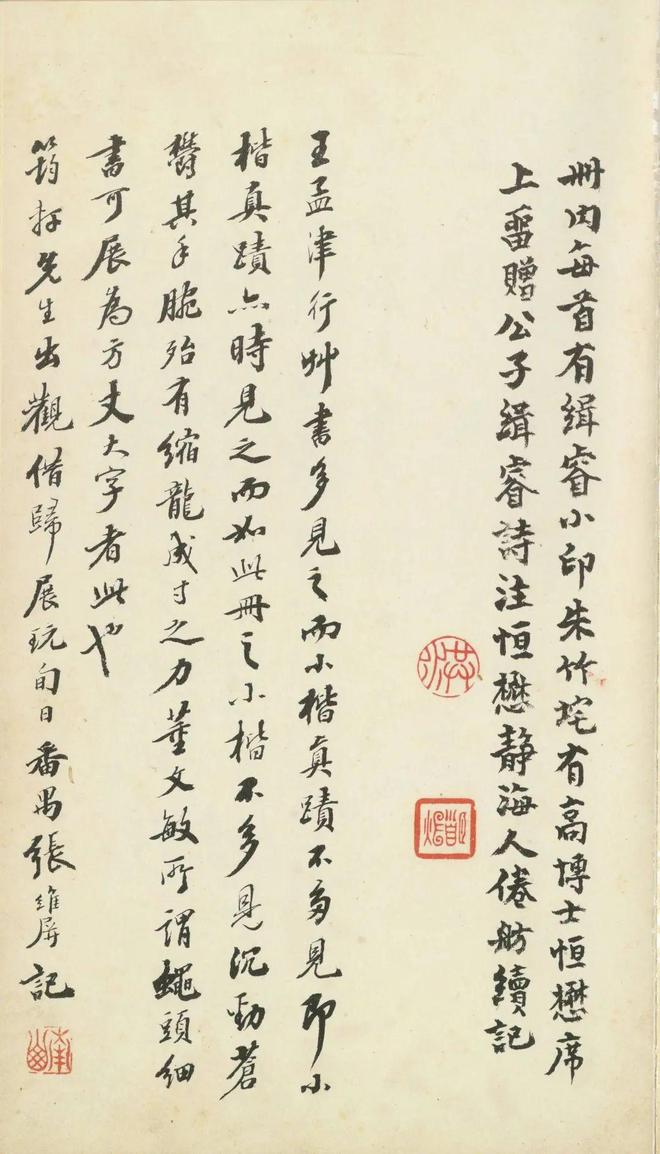 冊内每首有緝睿小印朱竹垞有高博士恒懋席
上畱贈公子緝睿詩注恒懋靜海人倦舫續記
王孟津行艸書多見之而小楷真蹟不多見即小
楷真蹟亦時見之而如此冊之小楷不多見沉勁蒼
鬱其手腕殆有縮龍成寸之力董文敏所謂蠅頭細
書可展為方丈大字者此也
筠坪先生出觀借歸展玩旬日番禺張維屏記